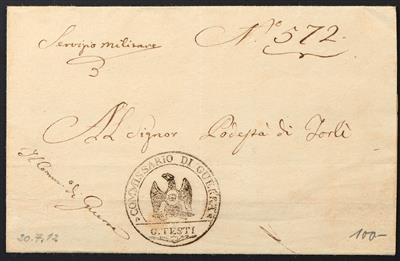 Servizio militare
N.º 572.
Al Signor Podestà di Forlì
Il Comm. di Guerra
COMMISSARIO DI GUERRA
G. TESTI
20.7.12
100-